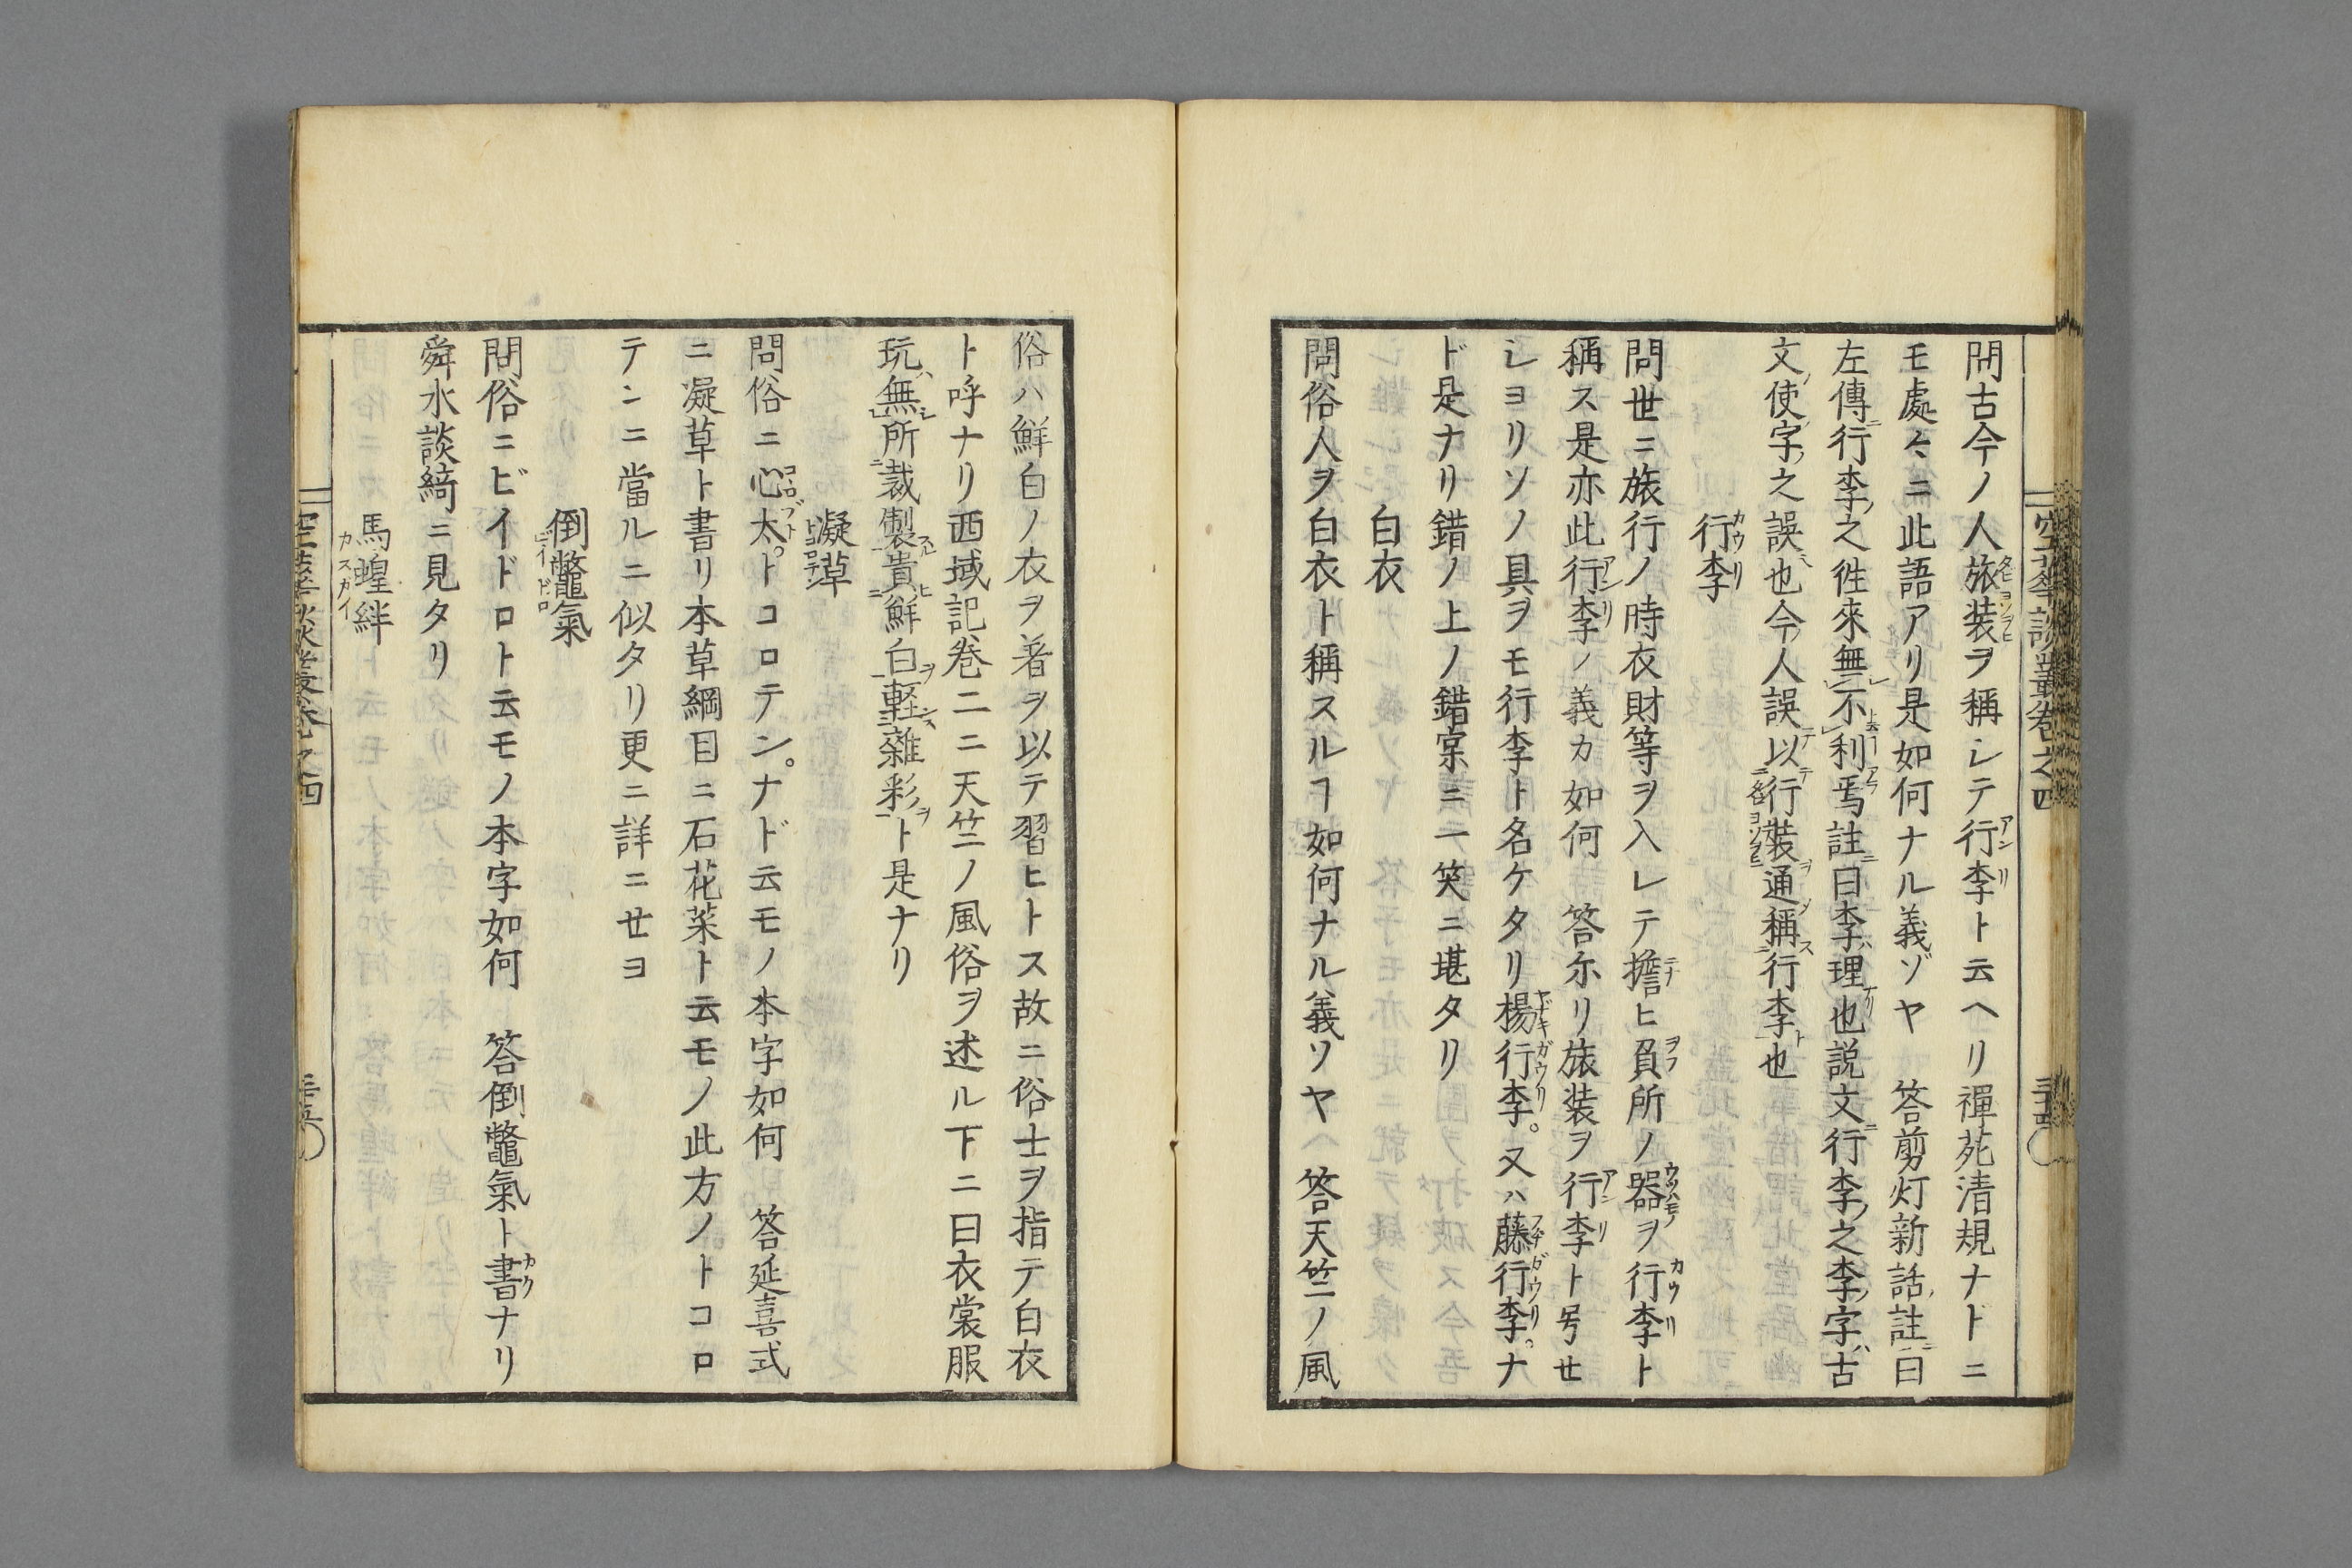 空華談叢卷之四
問古今ノ人旅装ヲ稱シテ行李ト云ヘリ禪苑清規ナドニ
モ處々ニ此語アリ是如何ナル義ゾヤ　答剪灯新話註曰
左傳行李之徃來無不利焉註曰李理也説文行李之李字古
文使字之誤也今人誤以行裝通稱行李也
行李
問世ニ旅行ノ時衣財等ヲ入レテ擔ヒ負所ノ器ヲ行李ト
稱ス是亦此行李ノ義カ如何　答尓リ旅装ヲ行李ト号せ
シヨリソノ具ヲモ行李ト名ケタリ楊行李。又ハ藤行李。ナ
ド是ナリ錯ノ上ノ錯寔ニ一笑ニ堪タリ
白衣
問俗人ヲ白衣ト稱スルヿ如何ナル義ソヤ　答天竺ノ風
俗ハ鮮白ノ衣ヲ著ヲ以テ習ヒトス故ニ俗士ヲ指テ白衣
ト呼ナリ西域記卷二ニ天竺ノ風俗ヲ述ル下ニ曰衣裳服
玩無所裁製貴鮮白輕雜彩ト是ナリ
凝草
問俗ニ心太。トコロテン。ナド云モノ本字如何　答延喜式
ニ凝草ト書リ本草綱目ニ石花菜ト云モノ此方ノトコロ
テンニ當ルニ似タリ更ニ詳ニせヨ
倒鼈氣
問俗ニビイドロト云モノ本字如何　答倒鼈氣ト書ナリ
舜水談綺ニ見タリ
馬蝗絆